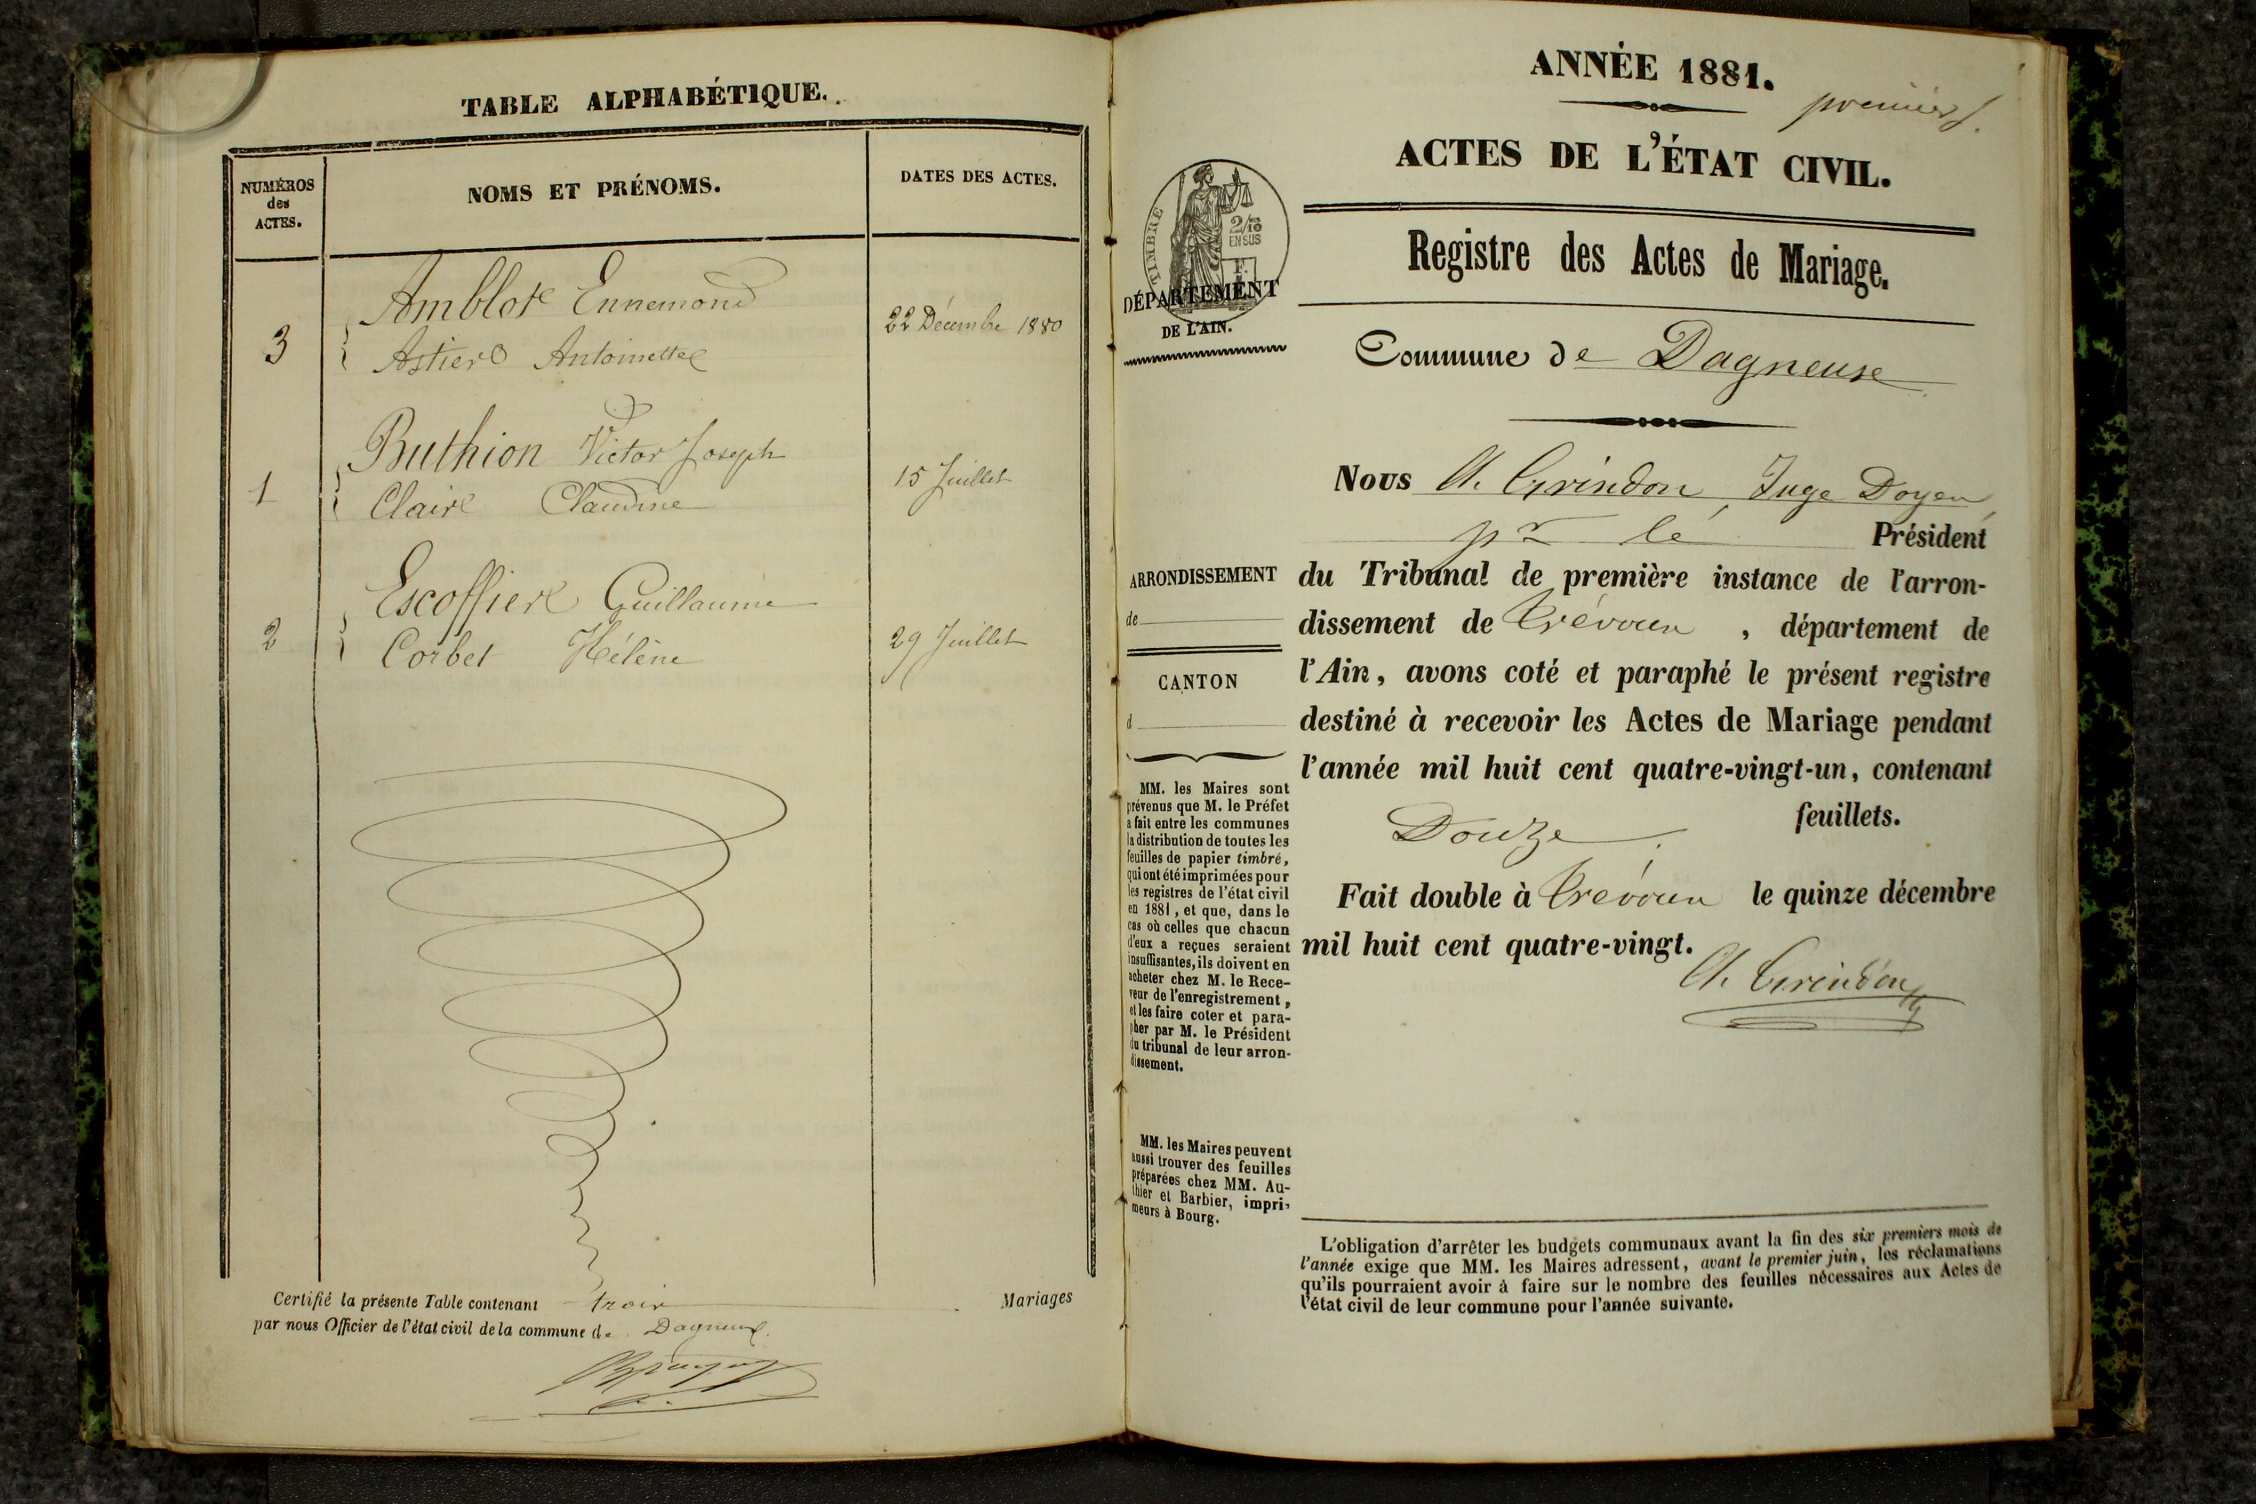 TABLE ALPHABÉTIQUE.
NUMÉROS
des
ACTES.
NOMS ET PRÉNOMS.
DATES DES ACTES.
Amblot Ennemond
3
22 Décembre 1880
Astier Antoinette
Buthion Victor Joseph
1
15 Juillet
Claire Claudine
Escoffier Guillaume
2
29 Juillet
Corbet Hélène
Certifié la présente Table contenant trois Mariages
par nous Officier de l'état civil de la commune de Dagneux
ANNÉE 1881.
premier
ACTES DE L'ÉTAT CIVIL.
TIMBRE
2/10
EN SUS
DÉPARTEMENT
DE L'AIN.
Registre des Actes de Mariage.
Commune de Dagneuse
Nous Ch. Grindon Juge Doyen,
pr le Président
du Tribunal de première instance de l'arron-
dissement de Trévoux, département de
l'Ain, avons coté et paraphé le présent registre
destiné à recevoir les Actes de Mariage pendant
l'année mil huit cent quatre-vingt-un, contenant
Douze feuillets.
Fait double à Trévoux le quinze décembre
mil huit cent quatre-vingt.
Ch. Grindon
ARRONDISSEMENT
de
CANTON
d
MM. les Maires sont
prévenus que M. le Préfet
a fait entre les communes
la distribution de toutes les
feuilles de papier timbré,
qui ont été imprimées pour
les registres de l'état civil
en 1881, et que, dans le
cas où celles que chacun
d'eux a reçues seraient
insuffisantes, ils doivent en
acheter chez M. le Rece-
veur de l'enregistrement,
et les faire coter et para-
pher par M. le Président
du tribunal de leur arron-
dissement.
MM. les Maires peuvent
aussi trouver des feuilles
préparées chez MM. Au-
thier et Barbier, impri-
meurs à Bourg.
L'obligation d'arrêter les budgets communaux avant la fin des six premiers mois de
l'année exige que MM. les Maires adressent, avant le premier juin, les réclamations
qu'ils pourraient avoir à faire sur le nombre des feuilles nécessaires aux Actes de
l'état civil de leur commune pour l'année suivante.